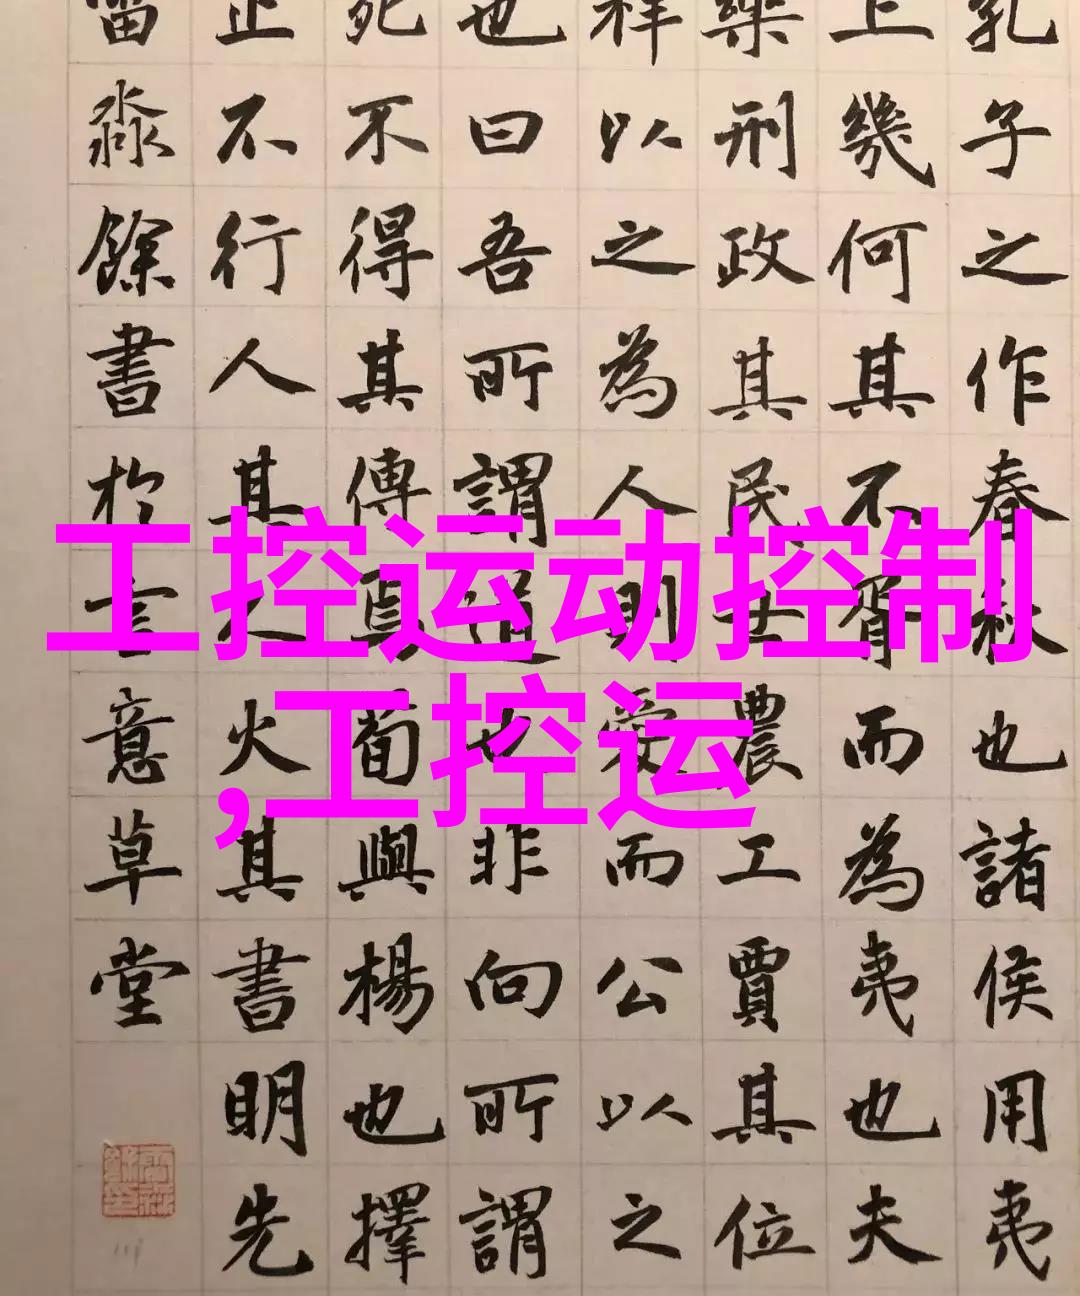 孔子之作春秋也諸侯用夷
上幾何其不胥而為夷也夫
樂刑政其民士農工賈其位
祥以之為人則愛而公以之
也曰吾所謂道也非向所謂
死不得其傳焉荀與楊也擇
止不行人其人火其書明先
淼餘書於言意草堂
工控运动控制
,工控运